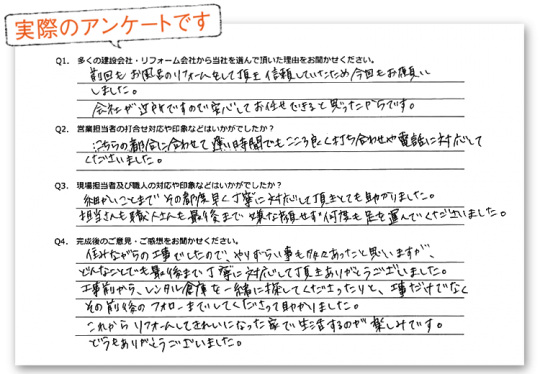 実際のアンケートです
Q1. 多くの建設会社・リフォーム会社から当社を選んで頂いた理由をお聞かせください。
前回もお風呂のリフォームをして頂き信頼していたため今回もお願い
しました。
会社が近所ですので安心してお任せできると思ったからです。
Q2. 営業担当者の打合せ対応や印象などはいかがでしたか?
こちらの都合に合わせて遅い時間でもこころ良く打ち合わせや電話に対応して
くださいました。
Q3. 現場担当者及び職人の対応や印象などはいかがでしたか?
細かいことまでその都度早く丁寧に対応して頂きとても助かりました。
担当さんも職人さんも最後まで嫌な顔せず何度も足を運んでくださいました。
Q4. 完成後のご意見・ご感想をお聞かせください。
住みながらの工事でしたので、やりずらい事も多々あったと思いますが、
どんなことでも最後まで丁寧に対応して頂きありがとうございました。
工事前から、レンタル倉庫を一緒に探してくださったりと、工事だけでなく
その前後のフォローまでしてくださって助かりました。
これからリフォームしてきれいになった家で生活するのが楽しみです。
どうもありがとうございました。